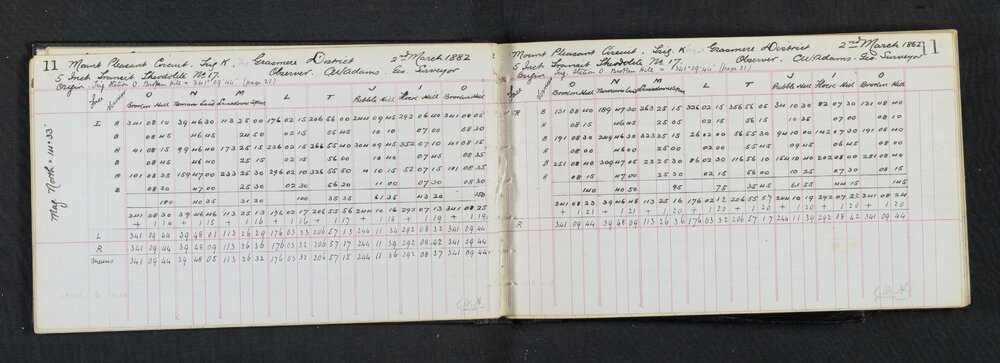 11 Mount Pleasant Circuit, Trig. K, Grasmere District 2nd March 1882
5 Inch Transit Theodolite No 17. Observer. CWAdams. Geo. Surveyor
Origin Trig. Station O. Broken Hill = 341° 09' 44" (page 21)
Face O N M L T J I O
Broken Hill Nomans Land Lansdowne Spur Pebble Hill Horse Hill Broken Hill
Mag North = 14° 33'
I A 341 08 10 39 46 30 113 25 00 176 02 15 206 56 00 244 09 45 292 06 40 341 08 05
B 08 45 46 45 24 50 02 15 55 45 10 10 07 00 08 30
A 41 08 15 99 46 40 173 25 15 236 02 15 266 55 40 304 09 45 352 07 10 41 08 15
B 08 45 46 40 25 15 02 15 56 00 10 40 07 45 08 35
A 101 08 35 159 47 00 233 25 30 296 02 10 326 55 50 4 10 15 52 07 15 101 08 35
B 08 30 47 00 25 30 02 30 56 20 11 00 07 30 08 30
180 40 35 31 20 100 35 35 61 35 43 20 150
341 08 30 39 46 46 113 25 13 176 02 17 206 55 56 244 10 16 292 07 13 341 08 25
+ 1 14 + 1 15 + 1 16 + 1 16 + 1 17 + 1 18 + 1 19 + 1 19
L 341 09 44 39 48 01 113 26 29 176 03 33 206 57 13 244 11 34 292 08 32 341 09 44
R 341 09 44 39 48 09 113 26 36 176 03 32 206 57 17 244 11 39 292 08 42 341 09 44
Means 341 09 44 39 48 05 113 26 32 176 03 32 206 57 15 244 11 36 292 08 37 341 09 44
Mount Pleasant Circuit, Trig. K Grasmere District 2nd March 1882 11
5 Inch Transit Theodolite No 17. Observer. CWAdams. Geo. Surveyor
Origin Trig. Station O. Broken Hill = 341° 09' 44" (page 21)
Face O N M L T J I O
Broken Hill Nomans Land Lansdowne Spur Pebble Hill Horse Hill Broken Hill
R A 131 08 40 189 47 30 263 25 15 326 02 15 356 56 05 34 10 30 82 07 30 131 08 40
B 08 15 46 45 25 05 02 15 56 15 10 35 07 00 08 10
B 191 08 30 249 46 30 323 25 15 26 02 00 56 55 30 94 10 00 142 07 30 191 08 40
A 08 00 46 00 25 00 02 00 55 45 09 45 06 45 08 00
B 251 08 40 309 47 05 23 25 30 86 02 30 116 56 10 154 10 40 202 08 00 251 08 40
A 08 15 47 00 25 30 02 15 56 00 10 25 07 30 08 15
140 40 50 95 75 35 45 61 55 44 15 145
341 08 23 39 46 48 113 25 16 176 02 12 206 55 57 244 10 19 292 07 22 341 08 24
+ 1 21 + 1 21 + 1 20 + 1 20 + 1 20 + 1 20 + 1 20 + 1 20
R 341 09 44 39 48 09 113 26 36 176 03 32 206 57 17 244 11 39 292 08 42 341 09 44